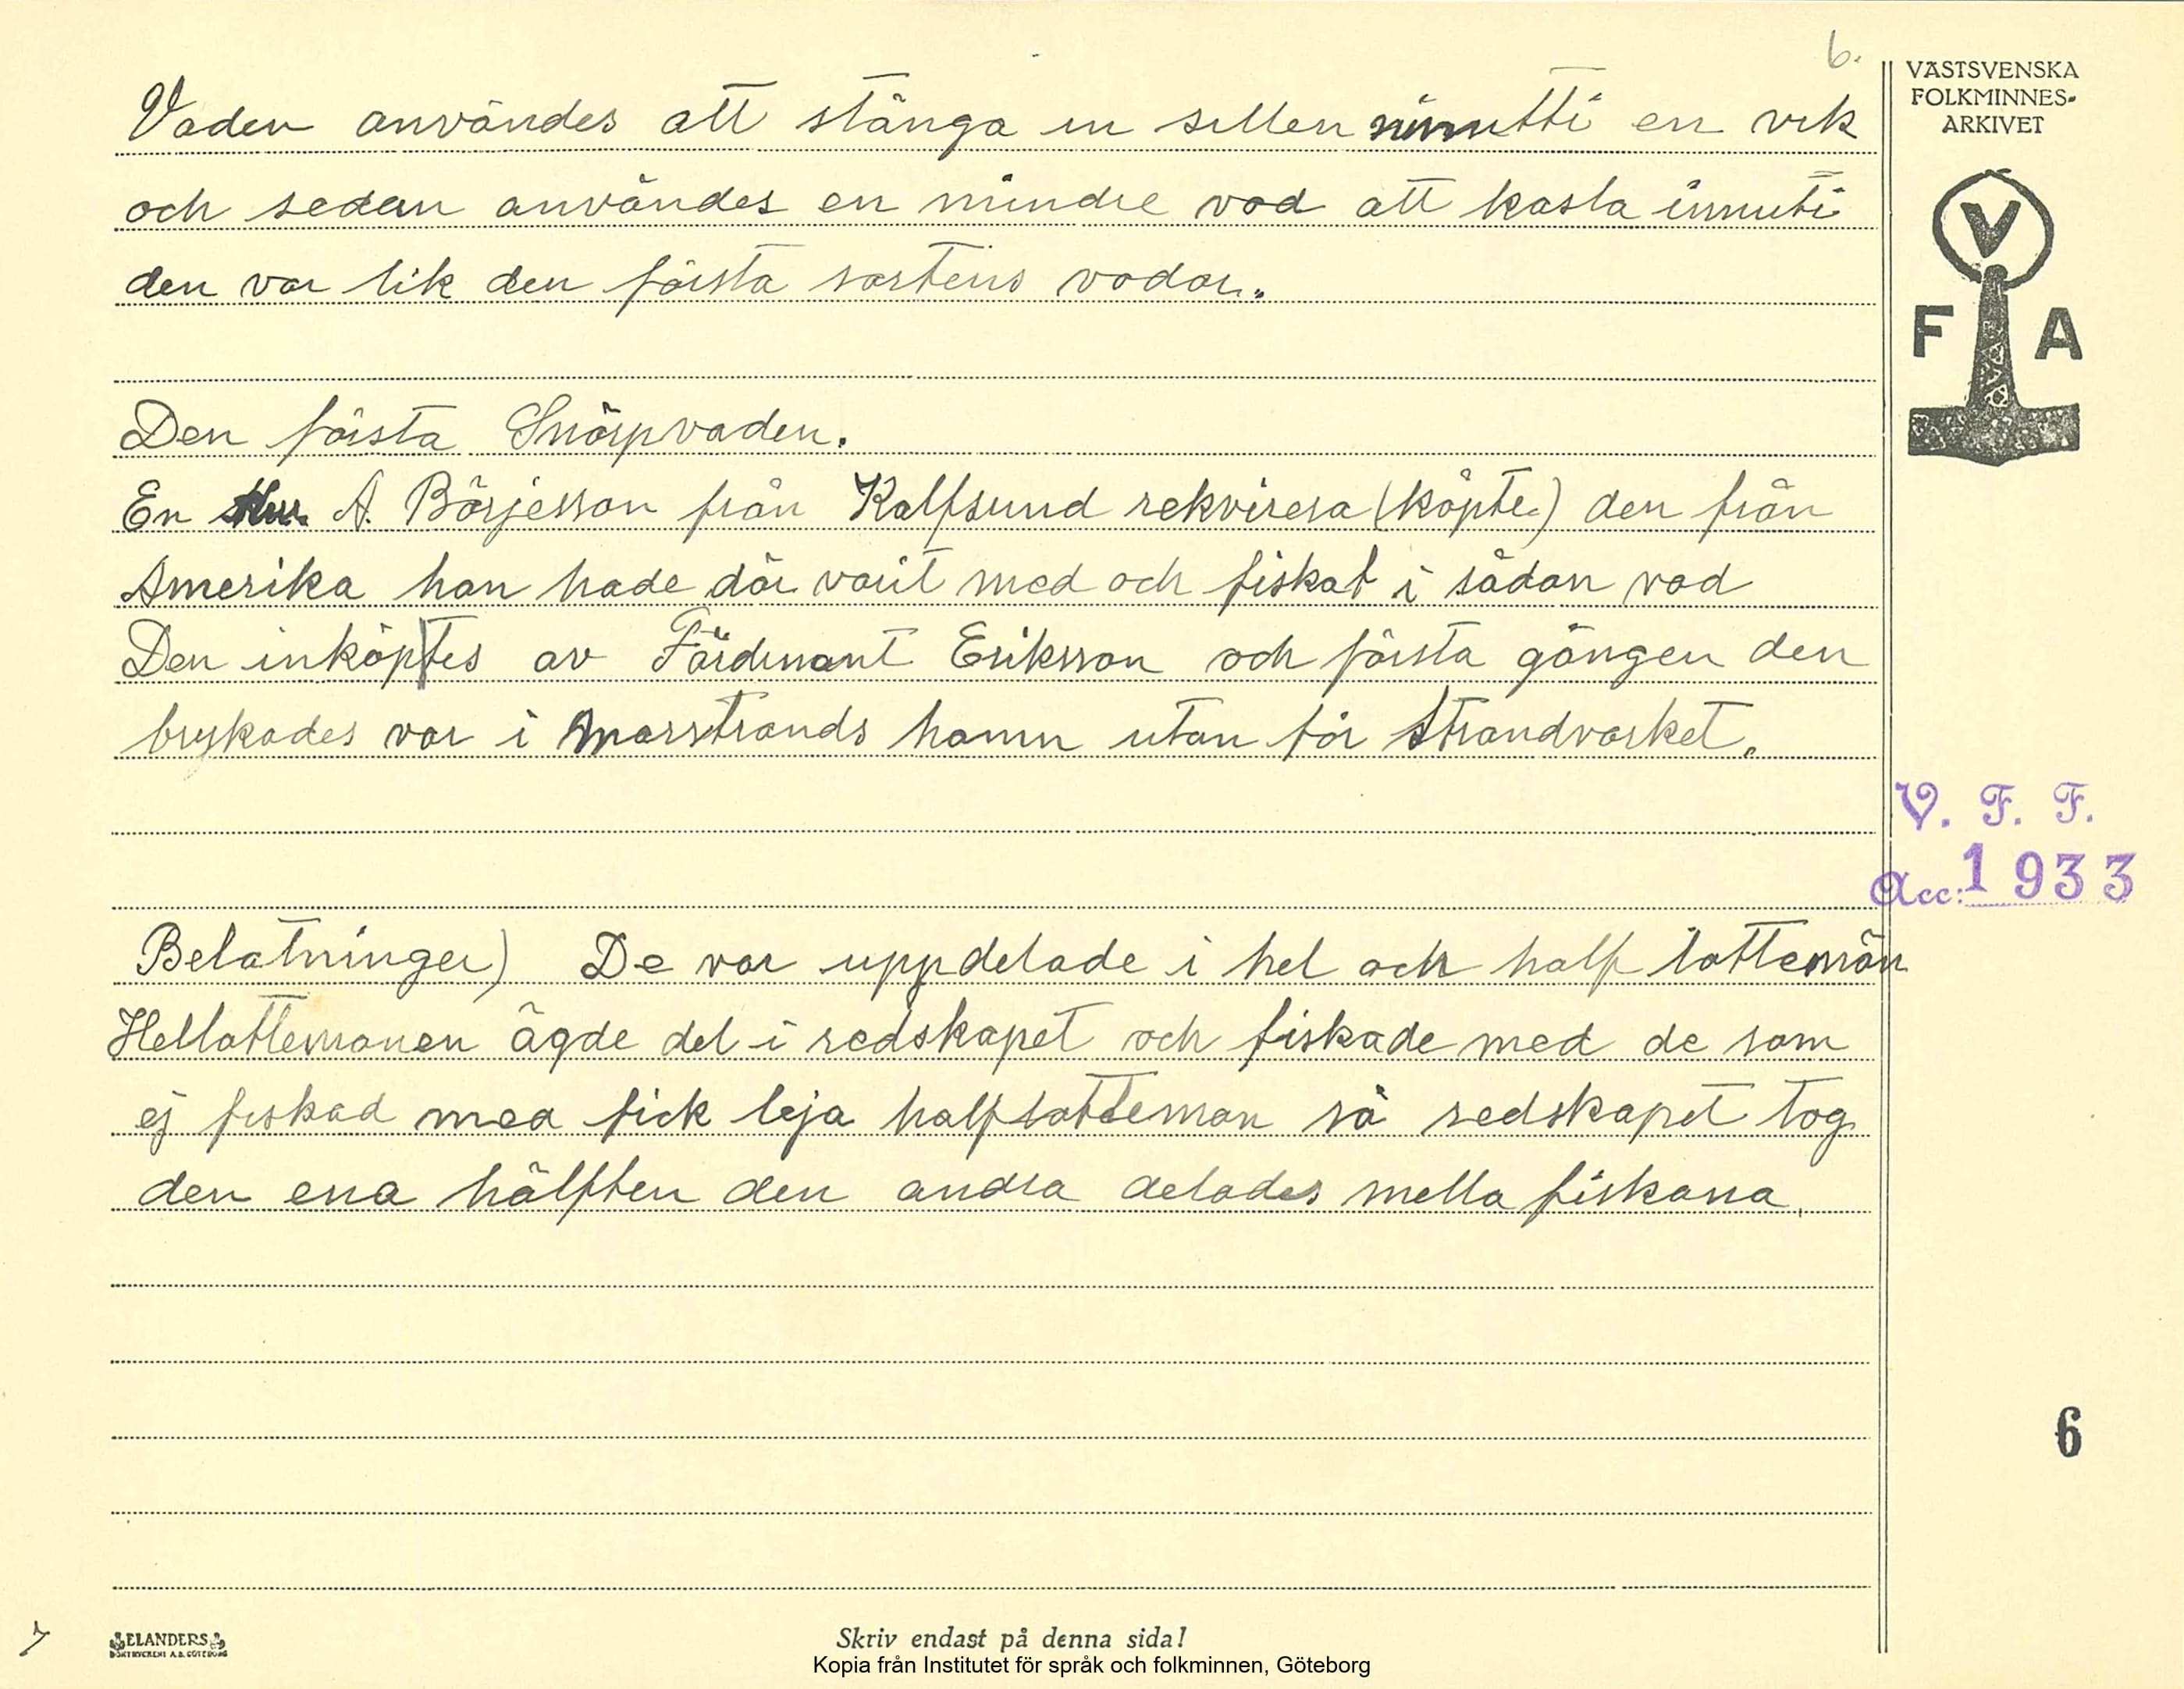 6.
Vaden användes att stänga in sillen innutti en vik
och sedan användes en mindre vad att kasta innuti
den var lik den första sortens vadar.
Den första Snörpvaden.
En A. Börjesson från Kalfsund rekvirera (köpte) den från
Amerika han hade där varit med och fiskat i sådan vad
Den inköptes av Färdinant Eriksson och första gången den
brykades var i Marstrands hamn utan för Strandvärket.
Belatninger) De var uppdelade i hel och half lottemän
Hellottemanen ägde del i redskapet och fiskade med de som
ej fiskad med fick leja halflotteman så redskapet tog
den ena hälften den andra delades mella fiskana.
VÄSTSVENSKA
FOLKMINNES-
ARKIVET
V
F A
V. F. F.
Acc: 1933
6
7
ELANDERS
BOKTRYCKERI A.B. GÖTEBORG
Skriv endast på denna sida!
Kopia från Institutet för språk och folkminnen, Göteborg